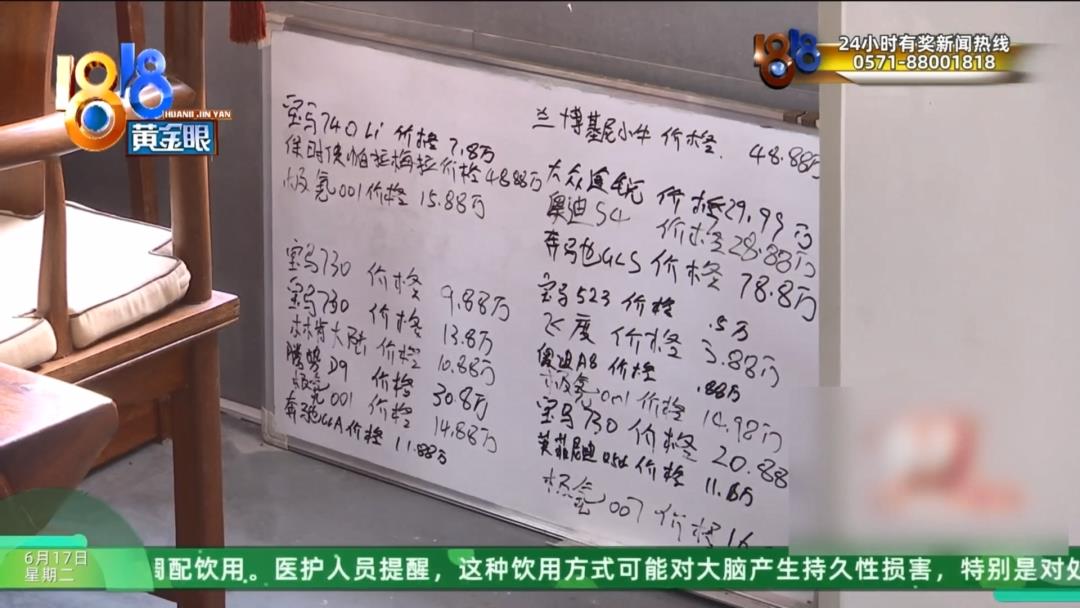 1818
HUANG JIN YAN
黄金眼
24小时有奖新闻热线
1818
0571-88001818
宝马740Li 价格 7.8万
保时侠帕拉梅拉价格48.88万
极氪001价格 15.88万
宝马730 价格 9.88万
宝马730 价格 13.8万
林肯大陆 价格 10.88万
腾势D9 价格 30.8万
极氪001 价格 14.88万
奔驰GLA价格 11.88万
兰博基尼小牛 价格. 48.88万
大众途锐 价格29.99万
奥迪S4 价格28.88万
奔驰GLS 价格 78.8万
宝马523 价格 .5万
飞度 价格 3.88万
奥迪A8 价格 .88万
极氪001 价格 14.98万
宝马730 价格 20.88
英菲尼迪 价格 11.8万
极氪007 价格16
6月17日
星期二
调配饮用。医护人员提醒，这种饮用方式可能对大脑产生持久性损害，特别是对处